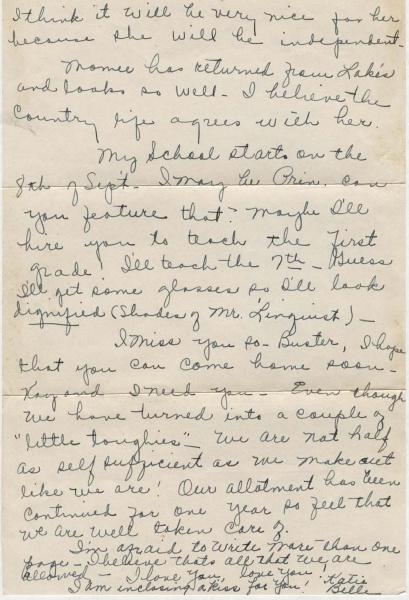 I think it will be very nice for her
because she will be independent -
Momee has returned from Lake's
and looks so well - I believe the
Country life agrees with her.
My School starts on the
8th of Sept - I may be Prin. can
you feature that? Maybe I'll
hire you to teach the first
grade. I'll teach the 7th - Guess
I'll get some glasses so I'll look
dignified (Shades of Mr. Linquist) -
I miss you so - Buster, I hope
that you can come home soon -
Kay and I need you - Even though
we have turned into a couple of
"little toughies" - We are not half
as self sufficient as we make out
like we are! Our allotment has been
continued for one year so feel that
we are well taken care of.
I'm afraid to write more than one
page - I believe thats all that we are
allowed - I love you, love you.
I am inclosing a kiss for you! Katie
Belle